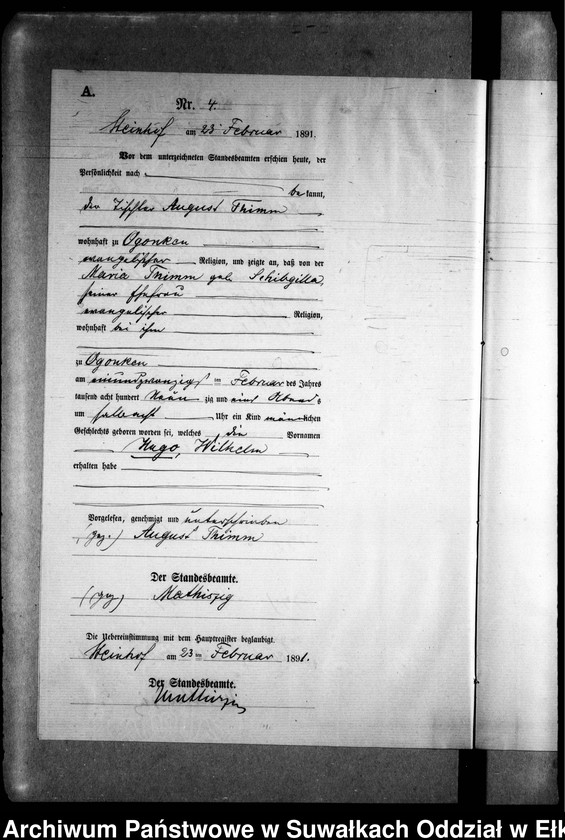 A.
Nr. 4.
Steinhof am 23 ten Februar 1891.
Vor dem unterzeichneten Standesbeamten erschien heute, der
Persönlichkeit nach
be kannt,
der Tischler August Thimm
wohnhaft zu Ogonken
evangelischer Religion, und zeigte an, daß von der
Maria Thimm geb. Schibgilla,
seiner Ehefrau
evangelischer Religion,
wohnhaft bei ihm
zu Ogonken
am einundzwanzigsten Februar des Jahres
tausend acht hundert Neun zig und eins Abends
um halb acht Uhr ein Kind männlichen
Geschlechts geboren worden sei, welches die Vornamen
Hugo, Wilhelm
erhalten habe
Vorgelesen, genehmigt und unterschrieben
(gez.) August Thimm
Der Standesbeamte.
(gez) Mathiszig
Die Uebereinstimmung mit dem Hauptregister beglaubigt.
Steinhof am 23 ten Februar 1891.
Der Standesbeamte.
Mathiszig
Archiwum Państwowe w Suwałkach Oddział w Ełk